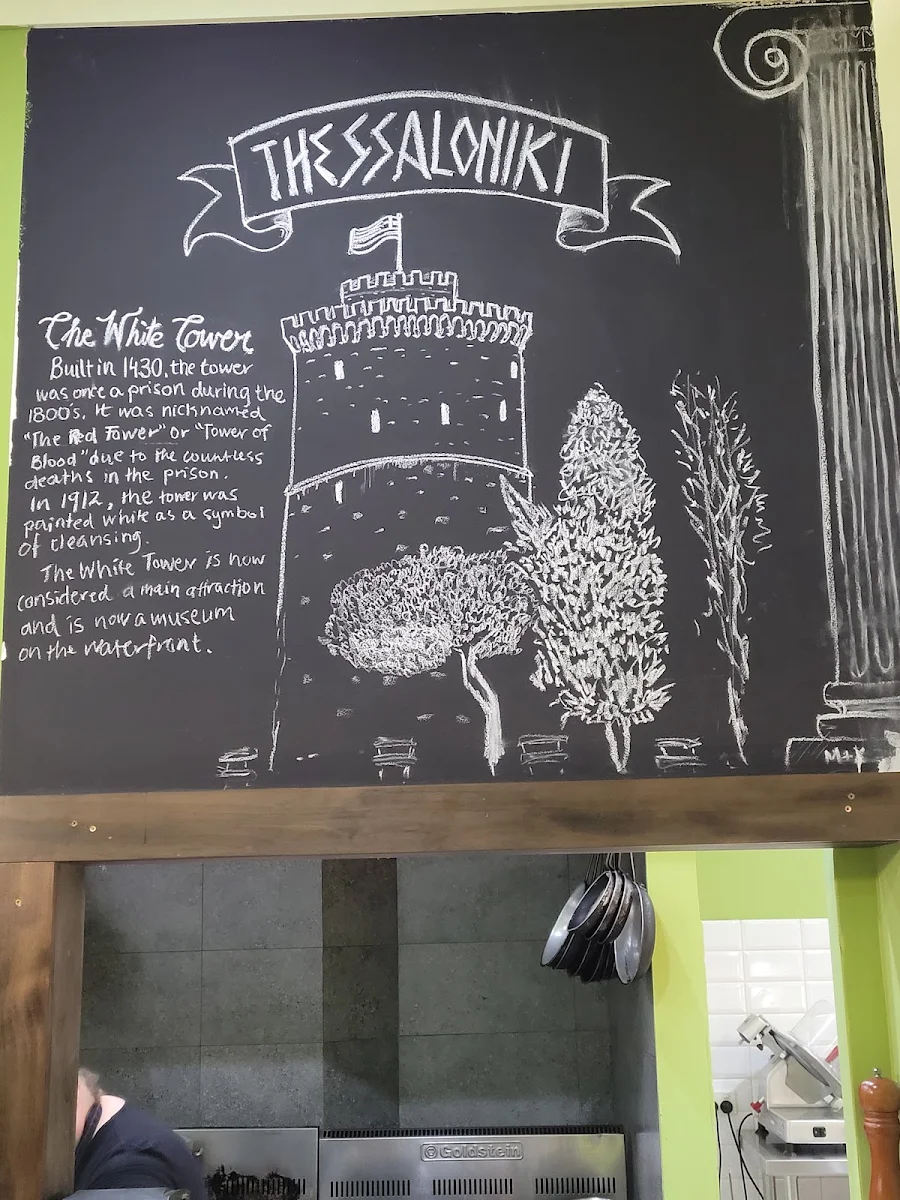 THESSALONIKI
The White Tower
Built in 1430, the tower
was once a prison during the
1800's. It was nicknamed
"The Red Tower" or "Tower of
Blood" due to the countless
deaths in the prison.
In 1912, the tower was
painted white as a symbol
of cleansing.
The White Tower is now
considered a main attraction
and is now a museum
on the waterfront.
Goldstein